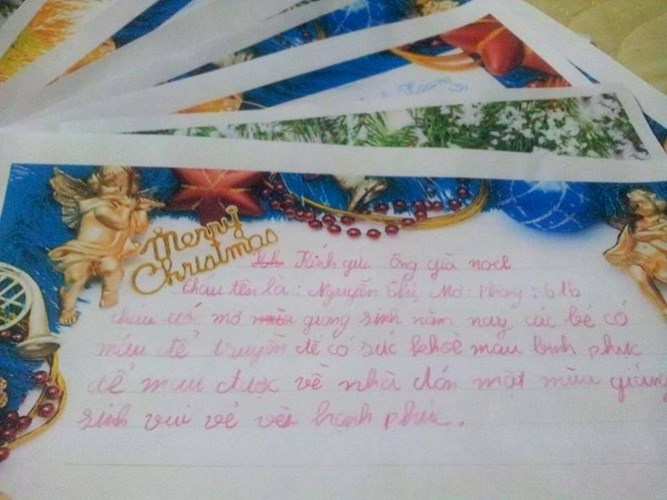 Merry
Christmas
Kính gửi ông già noel
Cháu tên là : Nguyễn Thị Mơ. Phòng : 616
cháu ước mơ giáng sinh năm nay các bé có
máu để truyền để có sức khoẻ mau bình phục
để mau được về nhà đón một mùa giáng
sinh vui vẻ và hạnh phúc.